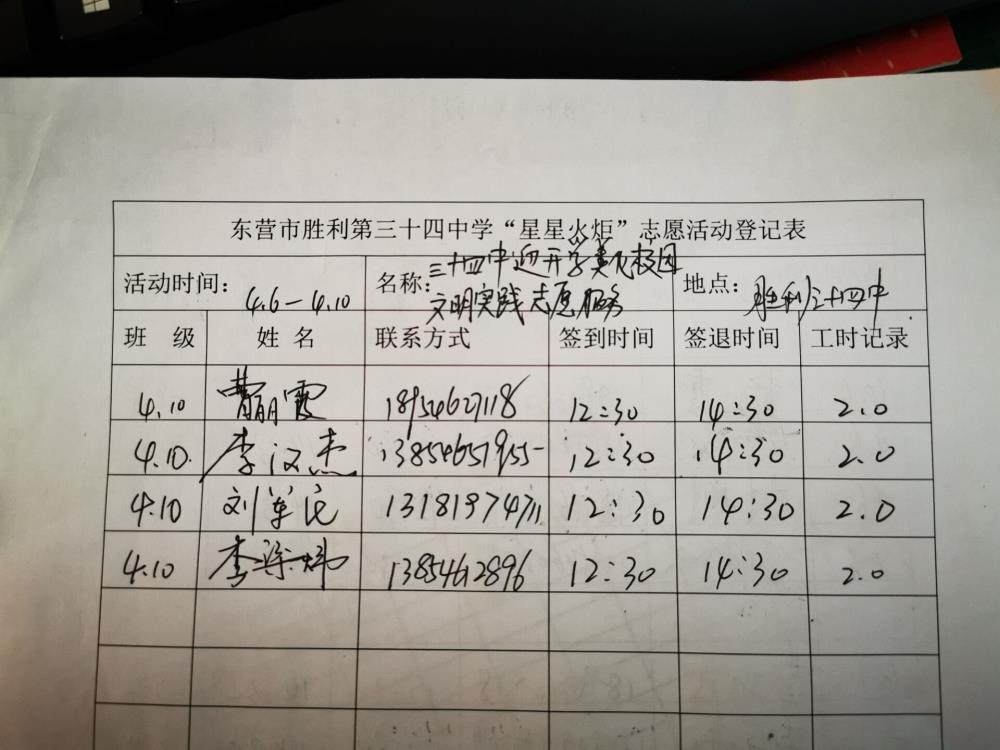 东营市胜利第三十四中学“星星火炬”志愿活动登记表
活动时间： 4.6-4.10 名称：三十四中迎开学美化校园 地点：胜利三十四中
文明实践志愿服务
班 级 姓 名 联系方式 签到时间 签退时间 工时记录
4.10 曹丽霞 18954627118 12:30 14:30 2.0
4.10. 李汉杰 13854651955 12:30 14:30 2.0
4.10 刘军民 13181974711 12:30 14:30 2.0
4.10 李 13854612896 12:30 14:30 2.0